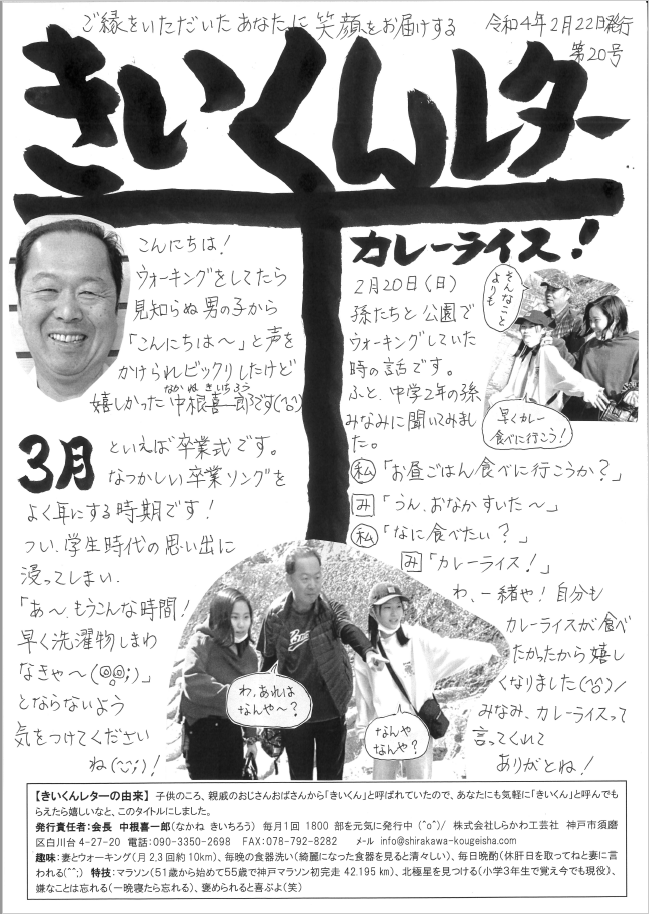 ご縁をいただいたあなたに笑顔をお届けする
令和4年2月22日発行
第20号
きいくんレター
こんにちは!
ウォーキングをしてたら
見知らぬ男の子から
「こんにちは〜」と声を
かけられビックリしたけど
なかね きいちろう
嬉しかった中根喜一郎です(^o^)
3月
といえば卒業式です。
なつかしい卒業ソングを
よく耳にする時期です!
つい、学生時代の思い出に
浸ってしまい、
「あ〜、もうこんな時間!
早く洗濯物しまわ
なきゃ〜(◎o◎;)」
とならないよう
気をつけてください
ね(^-^;)!
カレーライス!
2月20日(日)
孫たちと公園で
ウォーキングしていた
時の話です。
ふと、中学2年の孫
みなみに聞いてみまし
た。
そんなこと
よりも
早くカレー
食べに行こう!
私「お昼ごはん食べに行こうか?」
み「うん、おなかすいた〜」
私「なに食べたい?」
み「カレーライス!」
わ、一緒や!自分も
カレーライスが食べ
たかったから嬉し
くなりました(^o^)/
みなみ、カレーライスって
言ってくれて
ありがとね!
わ、あれは
なんや〜?
なんや
なんや?
【きいくんレターの由来】 子供のころ、親戚のおじさんおばさんから「きいくん」と呼ばれていたので、あなたにも気軽に「きいくん」と呼んでも
らえたら嬉しいなと、このタイトルにしました。
発行責任者:会長 中根喜一郎(なかね きいちろう) 毎月1回 1800部を元気に発行中 (^o^)/ 株式会社しらかわ工芸社 神戸市須磨
区白川台4-27-20 電話:090-3350-2698 FAX:078-792-8282 メール info@shirakawa-kougeisha.com
趣味:妻とウォーキング(月2,3回約10km)、毎晩の食器洗い(綺麗になった食器を見ると清々しい)、毎日晩酌(休肝日を取ってねと妻に言
われる(^^;) 特技:マラソン(51歳から始めて55歳で神戸マラソン初完走 42.195 km)、北極星を見つける(小学3年生で覚え今でも現役)、
嫌なことは忘れる(一晩寝たら忘れる)、褒められると喜ぶよ(笑)